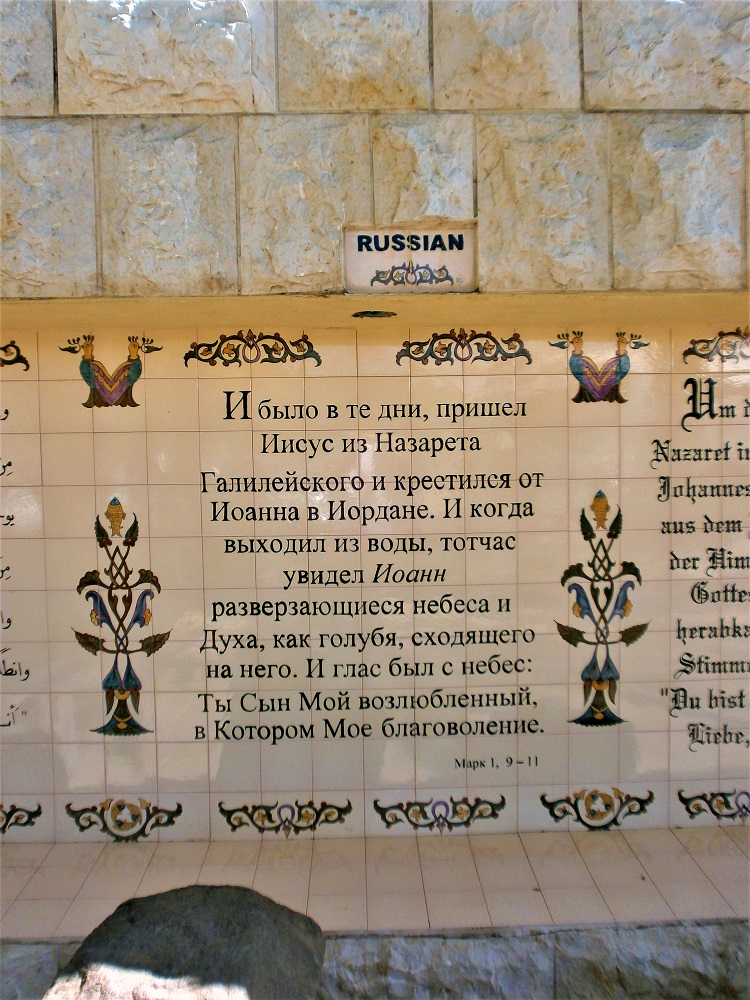 RUSSIAN
И было в те дни, пришел
Иисус из Назарета
Галилейского и крестился от
Иоанна в Иордане. И когда
выходил из воды, тотчас
увидел Иоанн
разверзающиеся небеса и
Духа, как голубя, сходящего
на него. И глас был с небес:
Ты Сын Мой возлюбленный,
в Котором Мое благоволение.
Марк 1, 9–11
Um d
Nazaret in
Johannes
aus dem
der Him
Gottes
herabka
Stimme
"Du bist
Liebe,